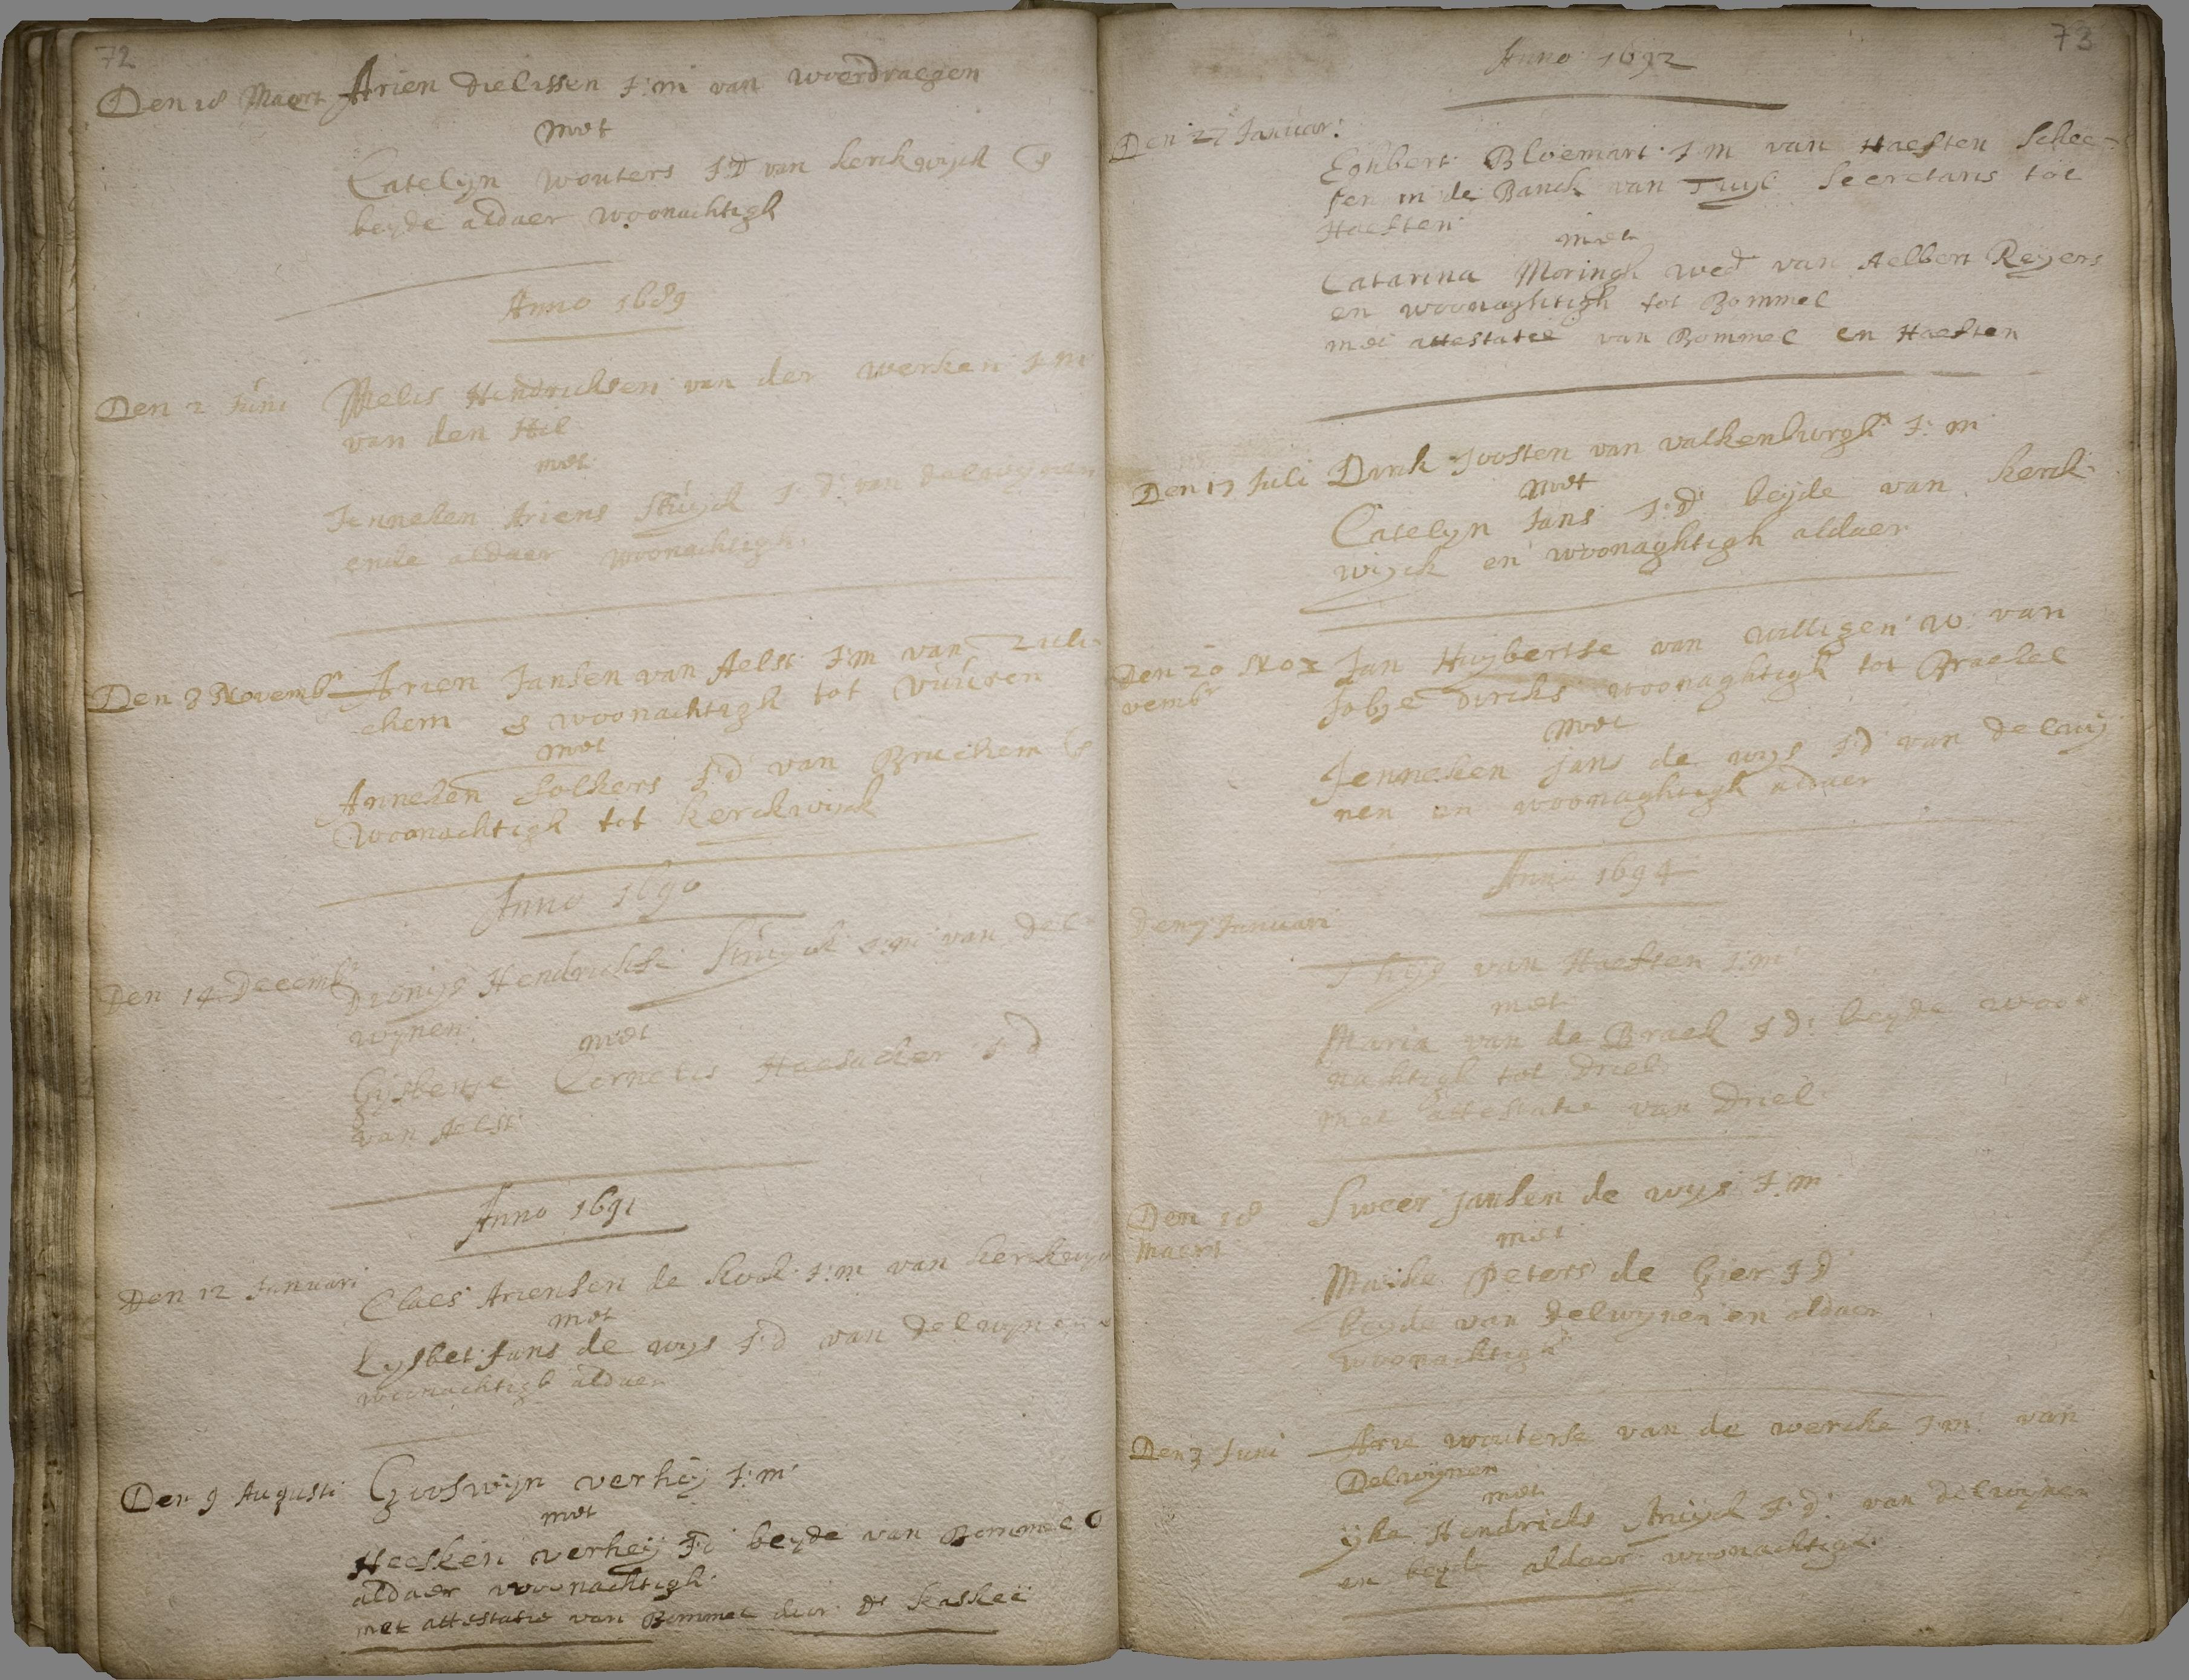 72
Den 18 Maert Arien Dielissen J:m van woerdraegen
met
Catelyn wouters J:D van kerckwyck &
beyde aldaer woonachtigh
Anno 1689
Den 2 Juni Melis Hendricksen van der werken J:m
van den Hil
met
Jenneken Ariens Struyck J:D: van delwynen
ende aldaer woonachtigh.
Den 8 Novemb: Arien Jansen van Aelst J:m van Zuli-
chem & woonachtigh tot vuuren
met
Anneken folkers J:d van Bruchem &
woonachtigh tot kerckwijck
Anno 1690
Den 14 Decemb: Dionijs Hendrickse Struyck J:m van del-
wynen
met
Gijsbertje Cornelis Haesacker J:d
van Aelst
Anno 1691
Den 12 Januari Claes Ariensen de kock J:m van kerckwyc
met
Lysbet Jans de wys J:d van Delwynen
woonachtigh aldaer
Den 9 Augusti Gooswyn verhey J:m
met
Heesken verhey J:d beyde van Bommel
aldaer woonachtigh
met attestatie van Bommel door Ds
73
Anno 1692
Den 27 Januar:
Eghbert Bloemart J:m van Haeften Schee-
pen in de Banck van Tuyl Secretaris tot
Haeften
met
Catarina Moringh wed van Aelbert Reyers
en woonaghtigh tot Bommel
met attestatie van Bommel en Haeften
Den 17 Juli Dirck Joosten van valkenburgh J:m
met
Catelyn Jans J:d beyde van kerck-
wijck en woonaghtigh aldaer
Den 20 No- Jan Huybertse van willigen w: van
vemb: Jobje dircks woonaghtigh tot Braekel
met
Jenneken jans de wys J:d van delwij
nen en woonaghtigh aldaer
Anno 1694
den 7 Januari
Thys van Haeften J:m
met
Maria van de Brack J:d: beyde woo-
nachtigh tot Driel
met attestatie van Driel
Den 18 Sweer jansen de wys J:m
Maert
met
Maike Peters de Gier J:d
beyde van Delwynen en aldaer
woonachtigh
Den 3 Juni Arie wouterse van de wercke J:m van
Delwijnen
met
ijke Hendricks Struyck J:d: van delwynen
en beyde aldaer woonachtigh